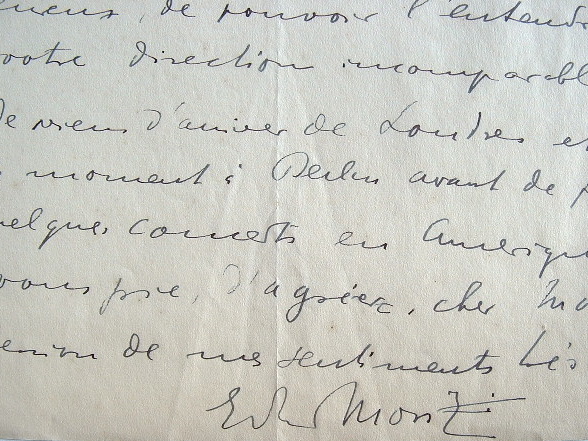 de pouvoir l'entend
votre direction incomparabl
Je viens d'arriver de Londres e
moment à Berlin avant de p
uelques concerts en Amériqu
vous prie, d'agréer, cher Ma
ession de mes sentiments